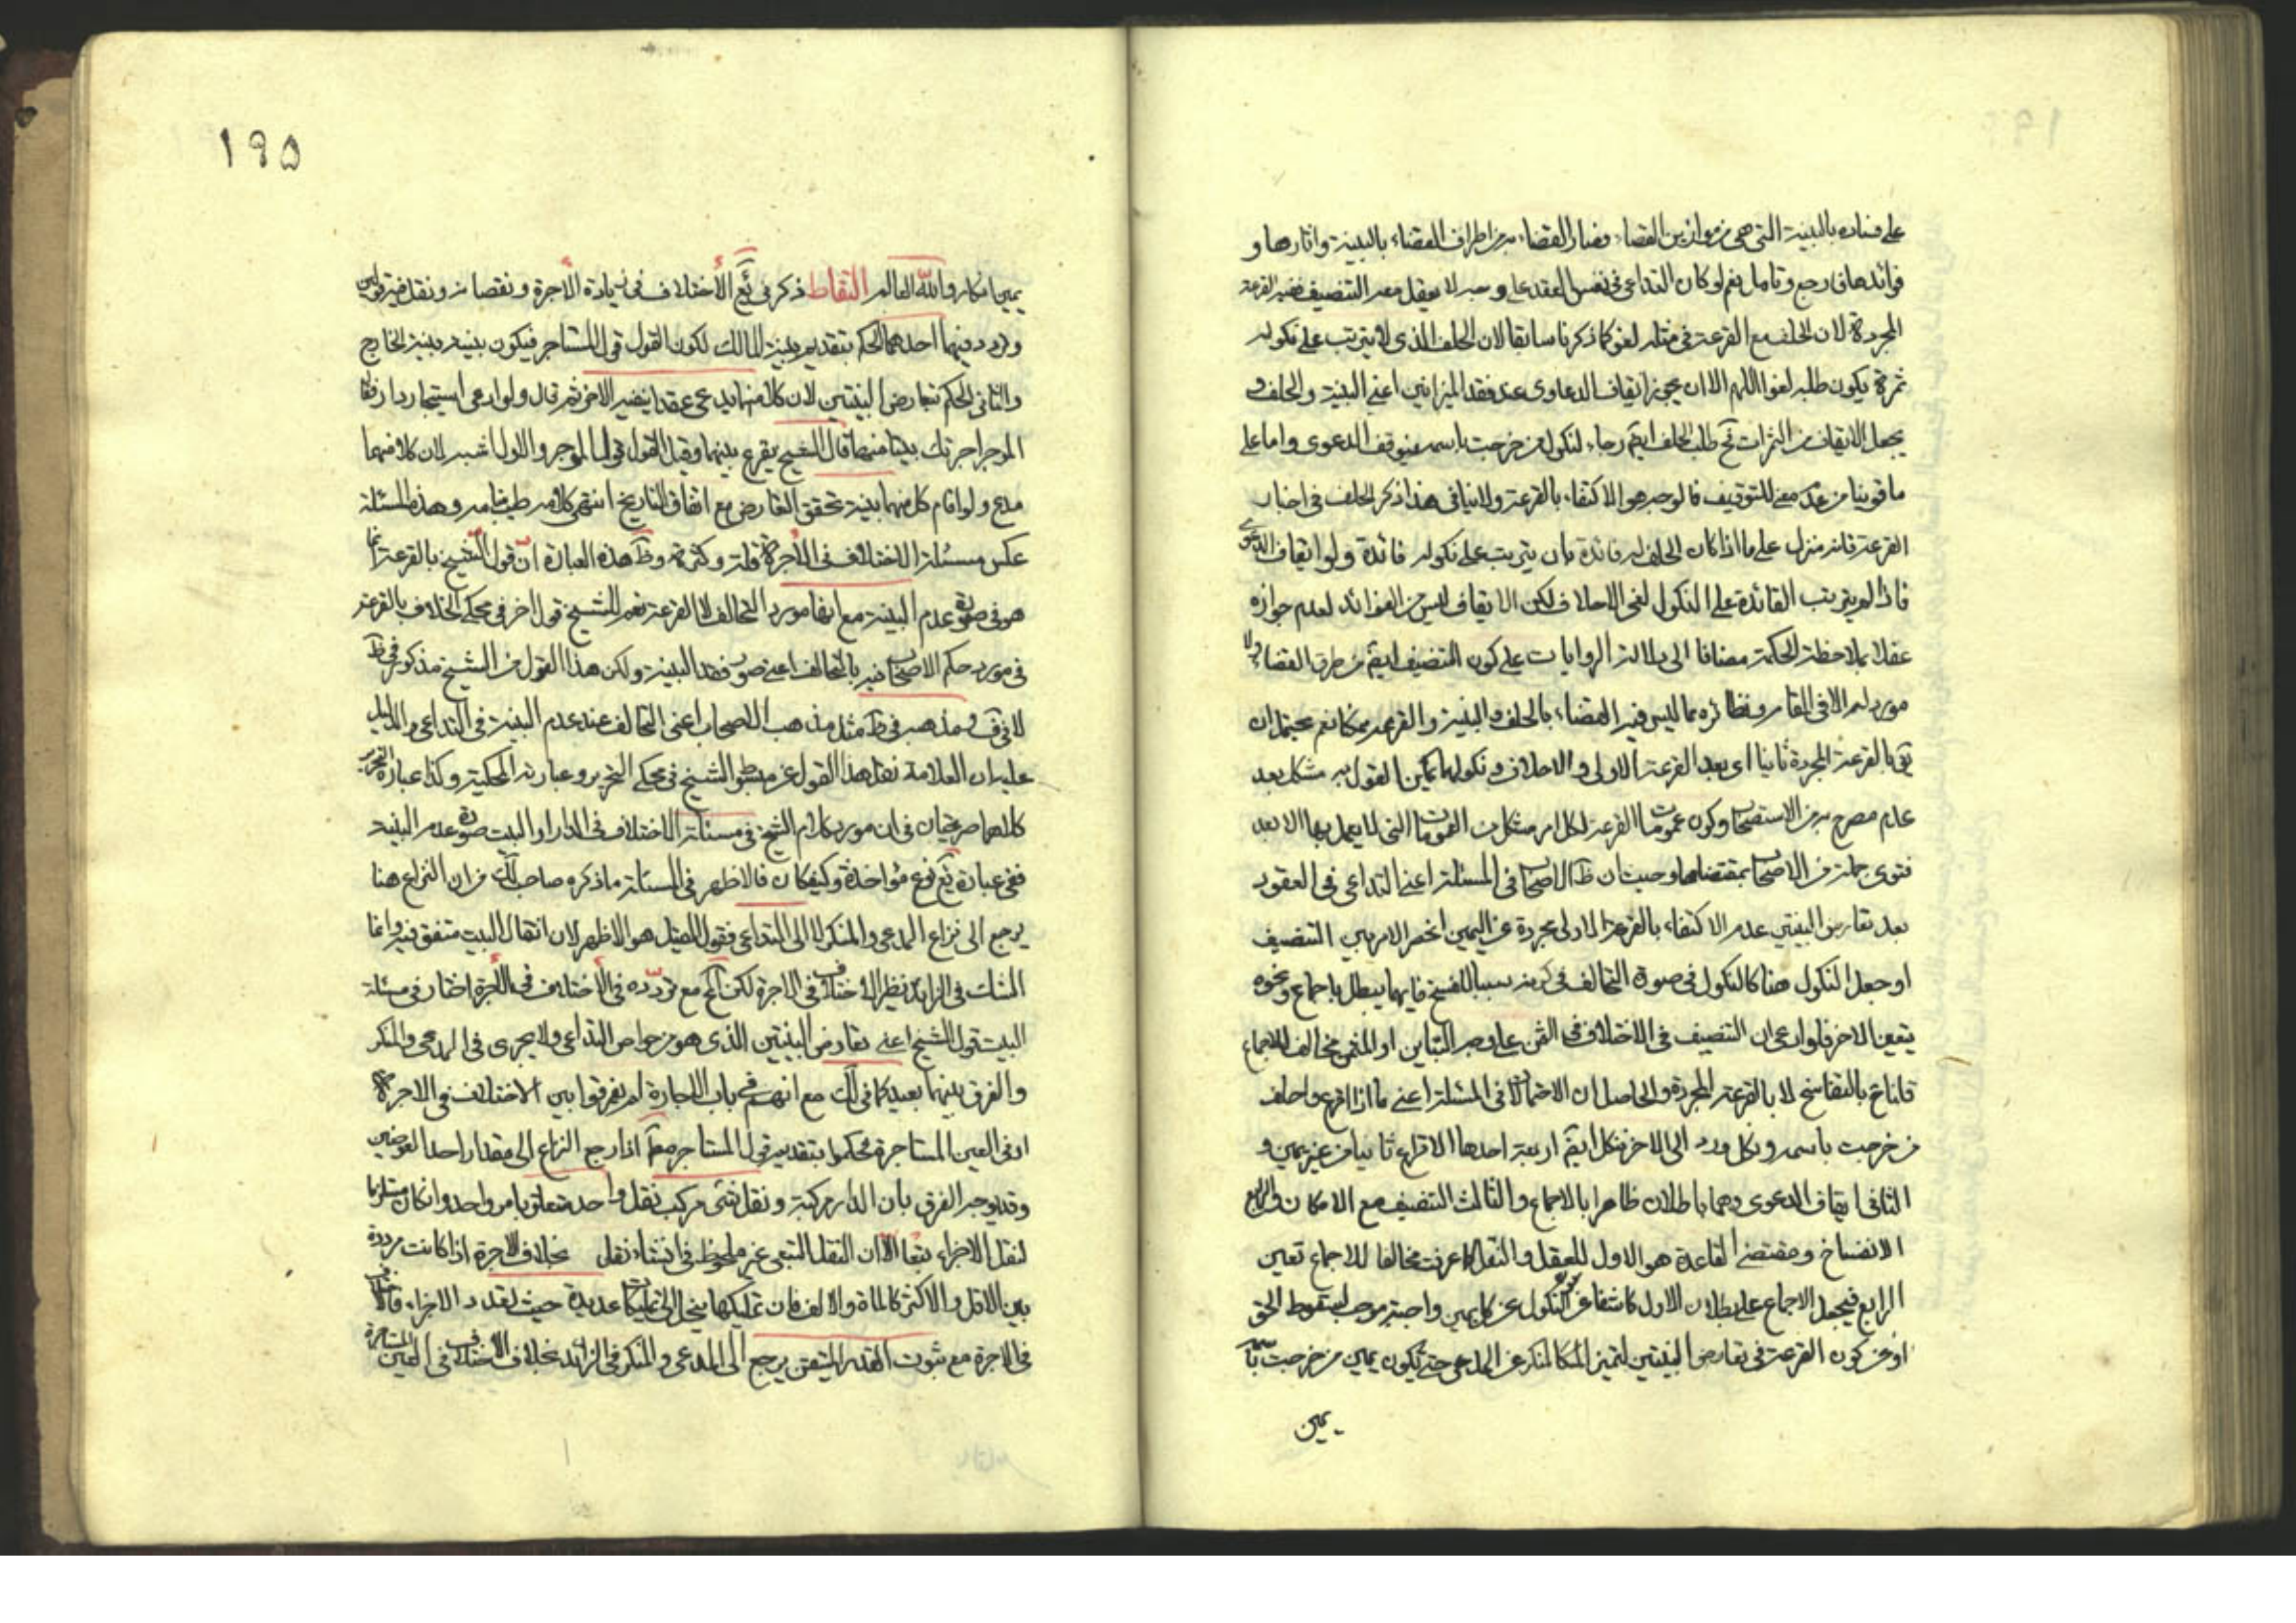 على فساده بالبينة التى هى من موازين القضاء فصار القضاء به من اطراف القضاء بالبينة واثارها و
فوائدها فراجع وتامل نعم لو كان التداعى فى نفس العقد على وجه لا يعقل معه التنصيف ففيه القرعة
المجردة لان الحلف مع القرعة فى مثله لغو كما ذكرنا سابقا لان الحلف الذى لا يترتب على نكوله
ثمرة يكون طلبه لغوا اللهم الا ان يجوز ايقاف الدعاوى عند فقد الميزانين اعنى البينة والحلف و
يجعل الايقاف من الثمرات فح طلب الحلف ايضا رجاء لنكول من خرجت باسمه فيوقف الدعوى واما على
ما قوينا من عدم معنى للتوقيف فالوجه هو الاكتفاء بالقرعة ولا ينافى هذا ذكر الحلف فى اخبار
القرعة فانه منزل على ما اذا كان الحلف له فائدة بان يترتب على نكوله فائدة ولو ايقاف الدعوى
فاذا لم يترتب الفائدة على النكول لغى الاحلاف لكن الايقاف ليس من الفوائد لعدم جوازه
عقلا بملاحظة الحكمة مضافا الى دلالة الروايات على كون التنصيف ايضا من طرق القضاء ولا
مورد له الا فى المقام ونظائره مما ليس فيه القضاء بالحلف والبينة والقرعة بمكان نعم يحتمل ان
يق بالقرعة المجردة ثانيا اى بعد القرعة الاولى والاحلاف ونكولهما لكن القول به مشكل بعد
عدم مصرح به من الاصحاب وكون عمومات القرعة لكل امر مشكل من العمومات التى لا يعمل بها الا بعد
فتوى جملة من الاصحاب بمقتضاها وحيث ان ظ الاصحاب فى المسئلة اعنى التداعى فى العقود
بعد تعارض البينتين عدم الاكتفاء بالقرعة الاولى مجردة عن اليمين انحصر الامر بين التنصيف
او جعل النكول هنا كالنكول فى صورة التحالف فى كونه سببا للفسخ فايهما يبطل باجماع ونحوه
يتعين الاخر فلو ادعى ان التنصيف فى الاختلاف فى الثمن على وجه التباين او المثمن مخالف للاجماع
فالناخ بالتفاسخ لا بالقرعة المجردة والحاصل ان الاحتمالات فى المسئلة اعنى ما اذا اقرع واحلف
من خرجت باسمه ونكل ورد الى الاخر فنكل ايضا اربعة احدها الاقراع ثانيا من غير يمين و
الثانى ايقاف الدعوى وهما باطلان ظاهرا بالاجماع والثالث التنصيف مع الامكان والرابع
الانفساخ ومقتضى القاعدة هو الاول للعقل والنقل كما عرفت مخالفا للاجماع تعين
الرابع فيجعل الاجماع على بطلان الاول كاشفا عن كون النكول عن كل يمين واجبة موجب لسقوط الحق
او عن كون القرعة فى تعارض البينتين لتميز المنكر عن المدعى حتى يكون يمين من خرجت باسمه
يمين
١٩٥
يمين انكار والله العالم التقاط ذكر فى يع الاختلاف فى زيادة الاجرة ونقصانه ونقل فيه قولين
وتردد فيها احدهما الحكم بتقديم بينة المالك لكون القول قول المستاجر فيكون بينته بينة الخارج
والثانى الحكم بتعارض البينتين لان كلا منهما يدعى عقدا يغير الاخر ثم قال ولو ادعى استيجار دار فقال
الموجر اجرتك بيتا منها قال الشيخ يقرع بينهما وقيل القول قول الموجر والاول اشبه لان كلا منهما
مدع ولو اقام كل منهما بينة تحقق التعارض مع اتفاق التاريخ انتهى كلامه طيب رمسه وهذه المسئلة
عكس مسئلة الاختلاف فى الاجرة قلة وكثرة وظ هذه العبارة ان قول الشيخ بالقرعة انما
هو فى صورة عدم البينة مع انها مورد التحالف لا القرعة نعم للشيخ قول اخر فى محكى الخلاف بالقرعة
فى مورد حكم الاصحاب فيه بالتحالف اعنى صورة فقد البينة ولكن هذا القول من الشيخ مذكور فى ط
لا فى ف ومذهبه فى ط مثل مذهب الاصحاب اعنى التحالف عند عدم البينة فى التداعى والدليل
عليه ان العلامة نقل هذا القول عن مبسوط الشيخ فى محكى التحرير وعبارته المحكية وكذا عبارة التحرير
كلاهما صريحتان فى ان مورد كلام الشيخ فى مسئلة الاختلاف فى الدار او البيت صورة عدم البينة
ففى عبارة يع نوع مؤاخذة وكيف كان فالاظهر فى المسئلة ما ذكره صاحب لك من ان النزاع هنا
يرجع الى نزاع المدعى والمنكر لا الى التداعى فقول القيل هو الاظهر لان انتقال البيت متفق فيه وانما
الشك فى الزائد نظير الاختلاف فى الاجرة لكن المحقق مع تردده فى الاختلاف فى الاجرة اختار فى مسئلة
البيت قول الشيخ اعنى تعارض البينتين الذى هو من خواص التداعى ولا يجرى فى المدعى والمنكر
والفرق بينهما بعيد كما فى لك مع انهم فى باب الاجارة لم يفرقوا بين الاختلاف فى الاجرة
او فى العين المستاجرة فحكموا بتقديم قول المستاجر معه اذا رجع النزاع الى مقدار احد العوضين
وقد يوجه الفرق بان الدار مركبة ونقل شىء مركب نقل واحد متعلق بامر واحد وان كان مستلزما
لنقل الاجزاء تبعا الا ان النقل التبعى غير ملحوظ فى انشاء نقل بخلاف الاجرة اذا كانت مرددة
بين الاقل والاكثر كالماة والالف فان تمليكها ينحل الى تمليكات عديدة حيث تعدد الاجزاء فالاختلاف
فى الاجرة مع ثبوت القدر المتيقن يرجع الى المدعى والمنكر فى الزائد بخلاف الاختلاف فى العين المستاجرة